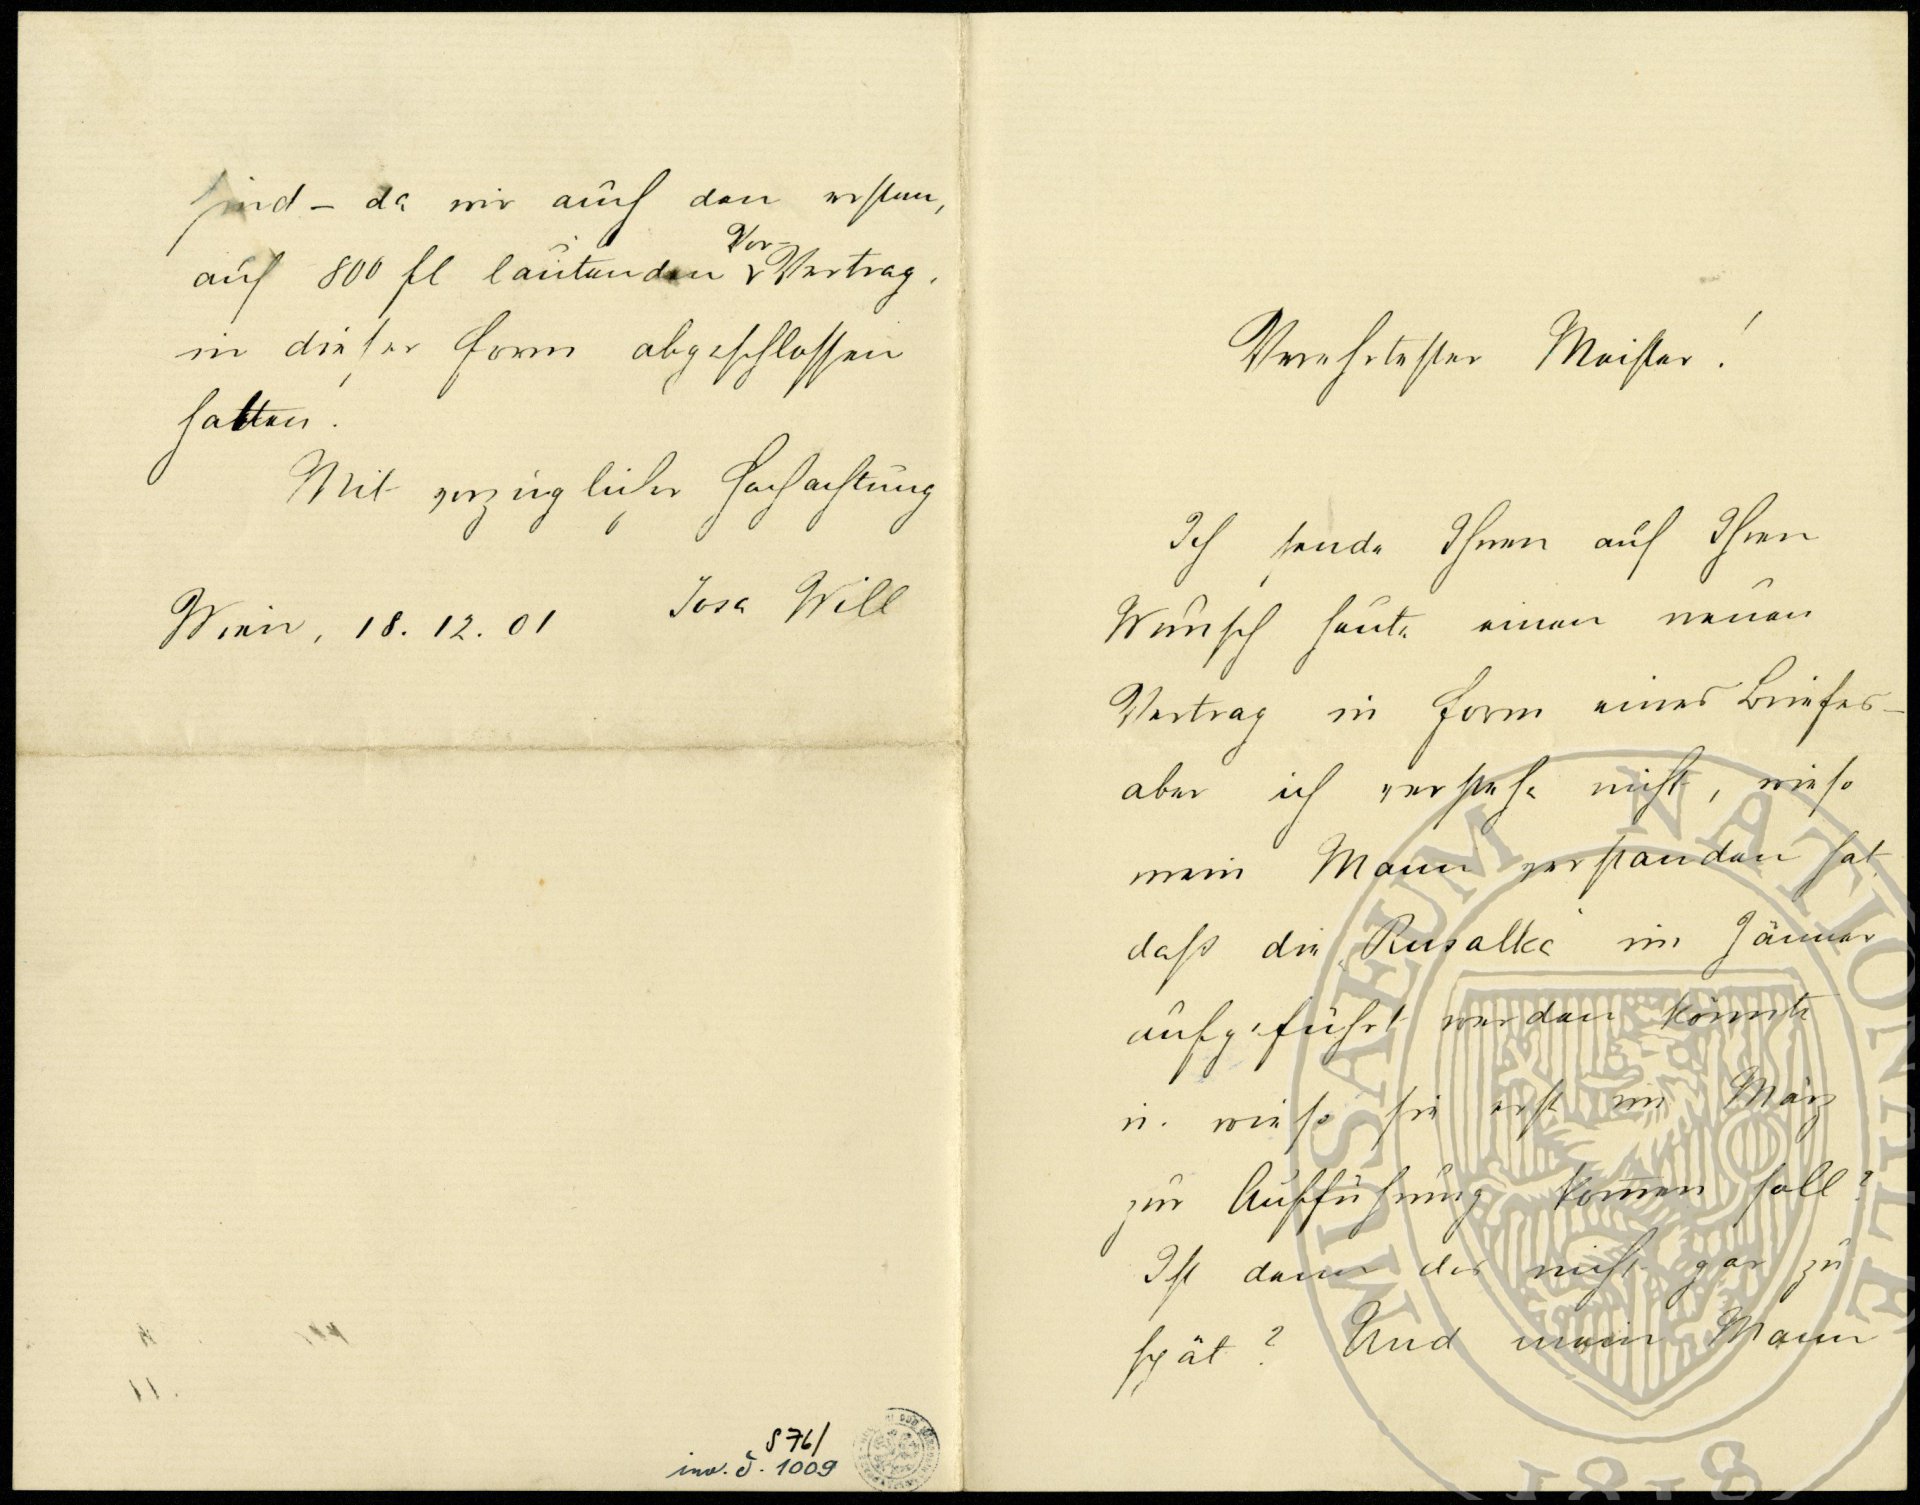 Verehrtester Meister!
Ich sende Ihnen auf Ihren
Wunsch heute einen neuen
Vertrag in Form eines Briefes –
aber ich verstehe nicht, wieso
mein Mann verstanden hat
daß die „Rusalka“ im Jänner
aufgeführt werden könnte
u. wieso sie erst im März
zur Aufführung kom̅en soll?
Ist denn das nicht gar zu
spät? Und mein Mann
sind – da wir auch den ersten,
auf 800 fl lautenden Vor-Vertrag,
in dieser Form abgeschlossen
hatten.
Mit vorzüglicher Hochachtung
Josa Will
Wien, 18. 12. 01
S 76/
inv. č. 1009
MUSAEUM NATIONALE
1818